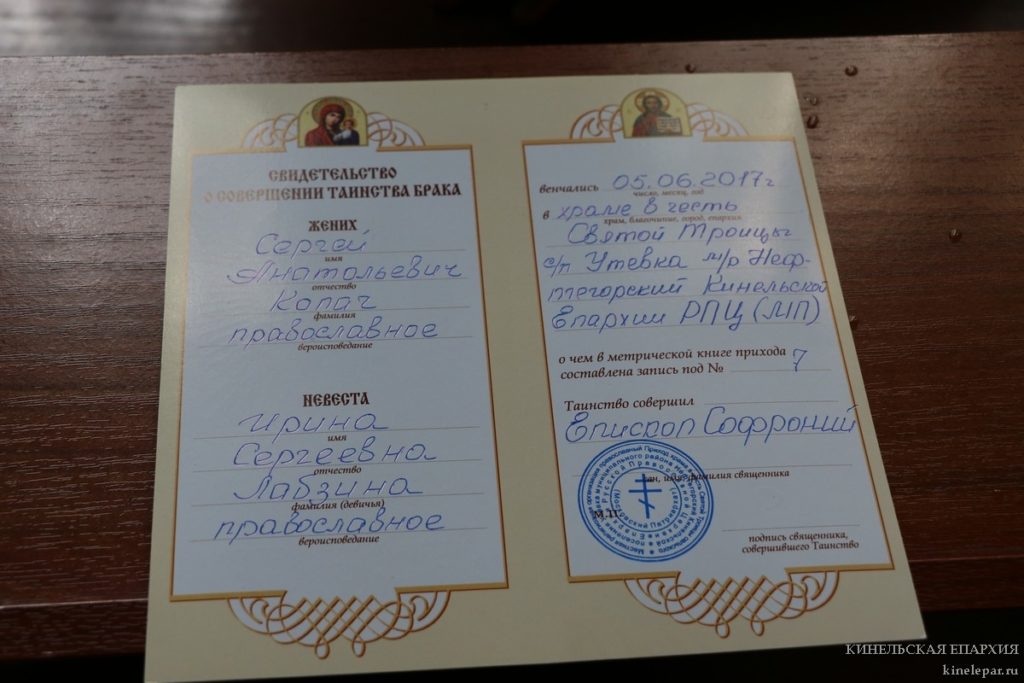 СВИДЕТЕЛЬСТВО
О СОВЕРШЕНИИ ТАИНСТВА БРАКА
ЖЕНИХ
Сергей
имя
Анатольевич
отчество
Копач
фамилия
православное
вероисповедание
НЕВЕСТА
Ирина
имя
Сергеевна
отчество
Лабзина
фамилия (девичья)
православное
вероисповедание
венчались 05.06.2017г
число, месяц, год
в храме в честь
храм, благочиние, город, епархия
Святой Троицы
с/п Утевка м/р Неф-
тегорский Кинельской
Епархии РПЦ (МП)
о чем в метрической книге прихода
составлена запись под № 7
Таинство совершил
Епископ Софроний
сан, имя, фамилия священника
М.П.
подпись священника,
совершившего Таинство
КИНЕЛЬСКАЯ ЕПАРХИЯ
kinelepar.ru